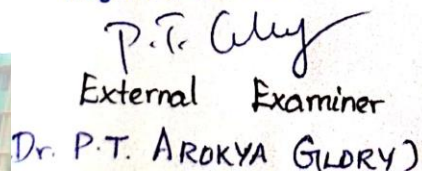 P.T. Glory
External Examiner
Dr. P.T. AROKYA GLORY)